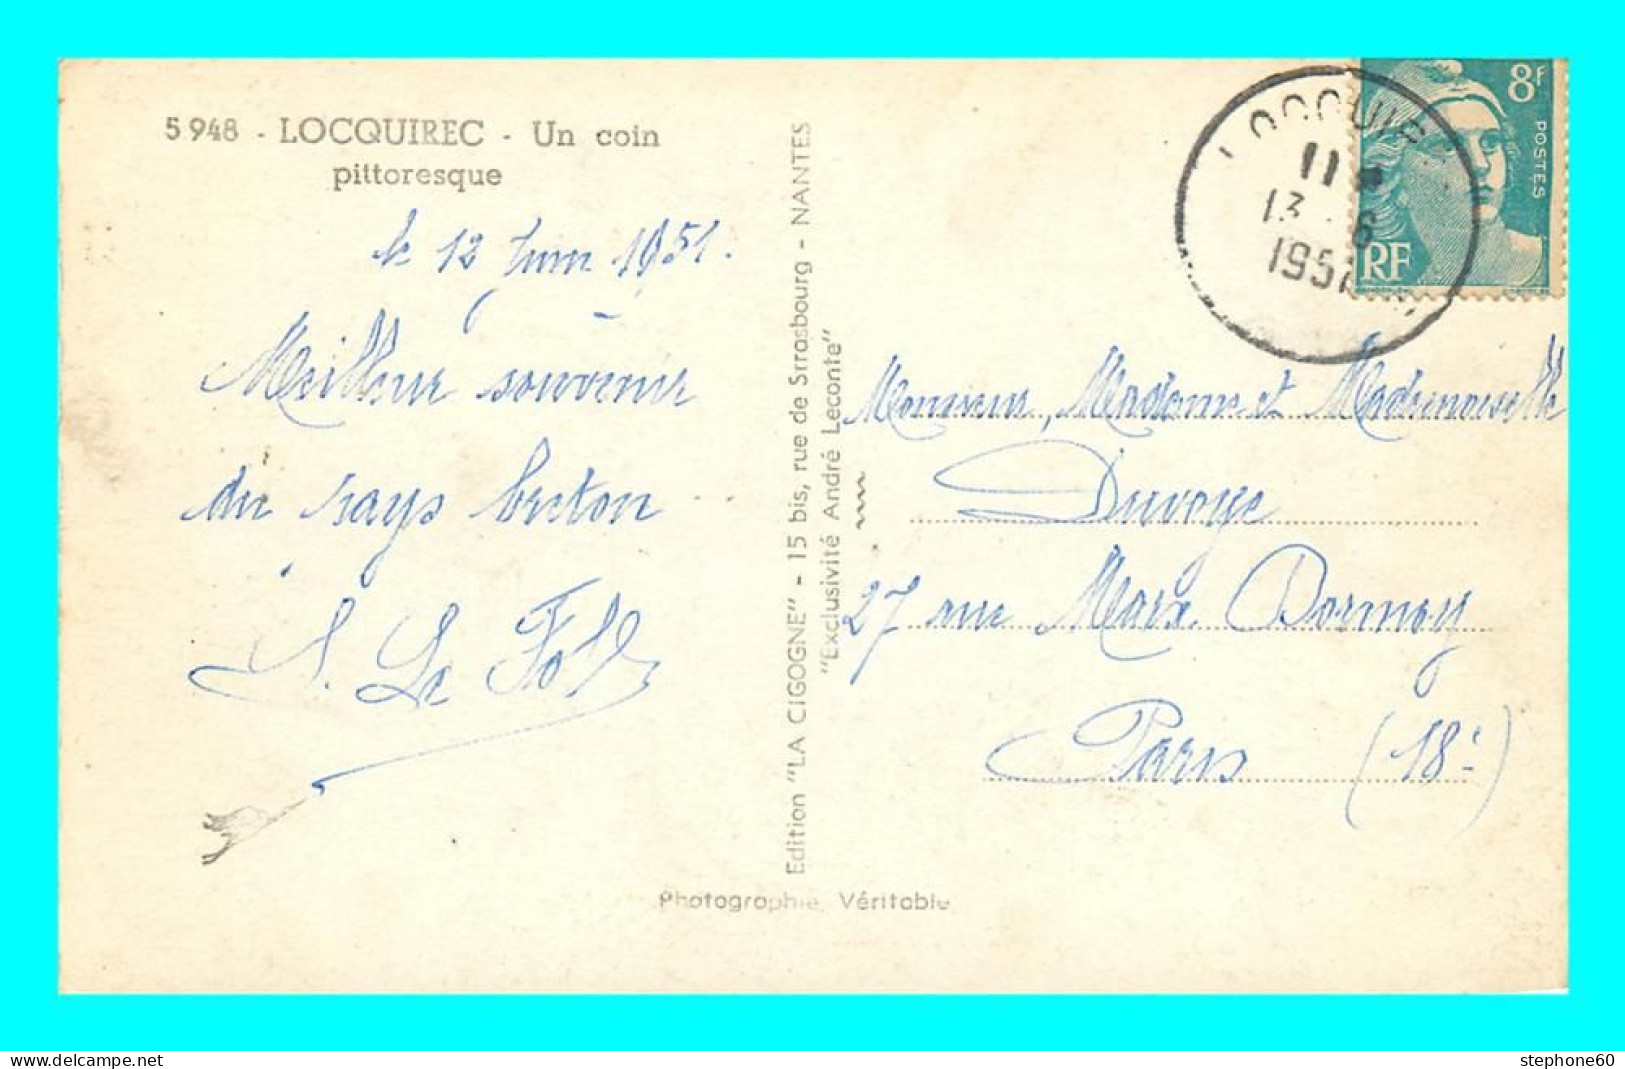 5948 - LOCQUIREC - Un coin
pittoresque
le 12 Juin 1951.
Meilleur souvenir
du pays breton
S. Le Foll
Edition "LA CIGOGNE" - 15 bis, rue de Strasbourg - NANTES
"Exclusivité André Leconte"
Photographie Véritable
8F
POSTES
RF
LOCQUIREC
11
13 - 6
1951
Monsieur, Madame et Mademoiselle
Duvoye
27 rue Marx Dormoy
Paris (18e)
www.delcampe.net
stephone60